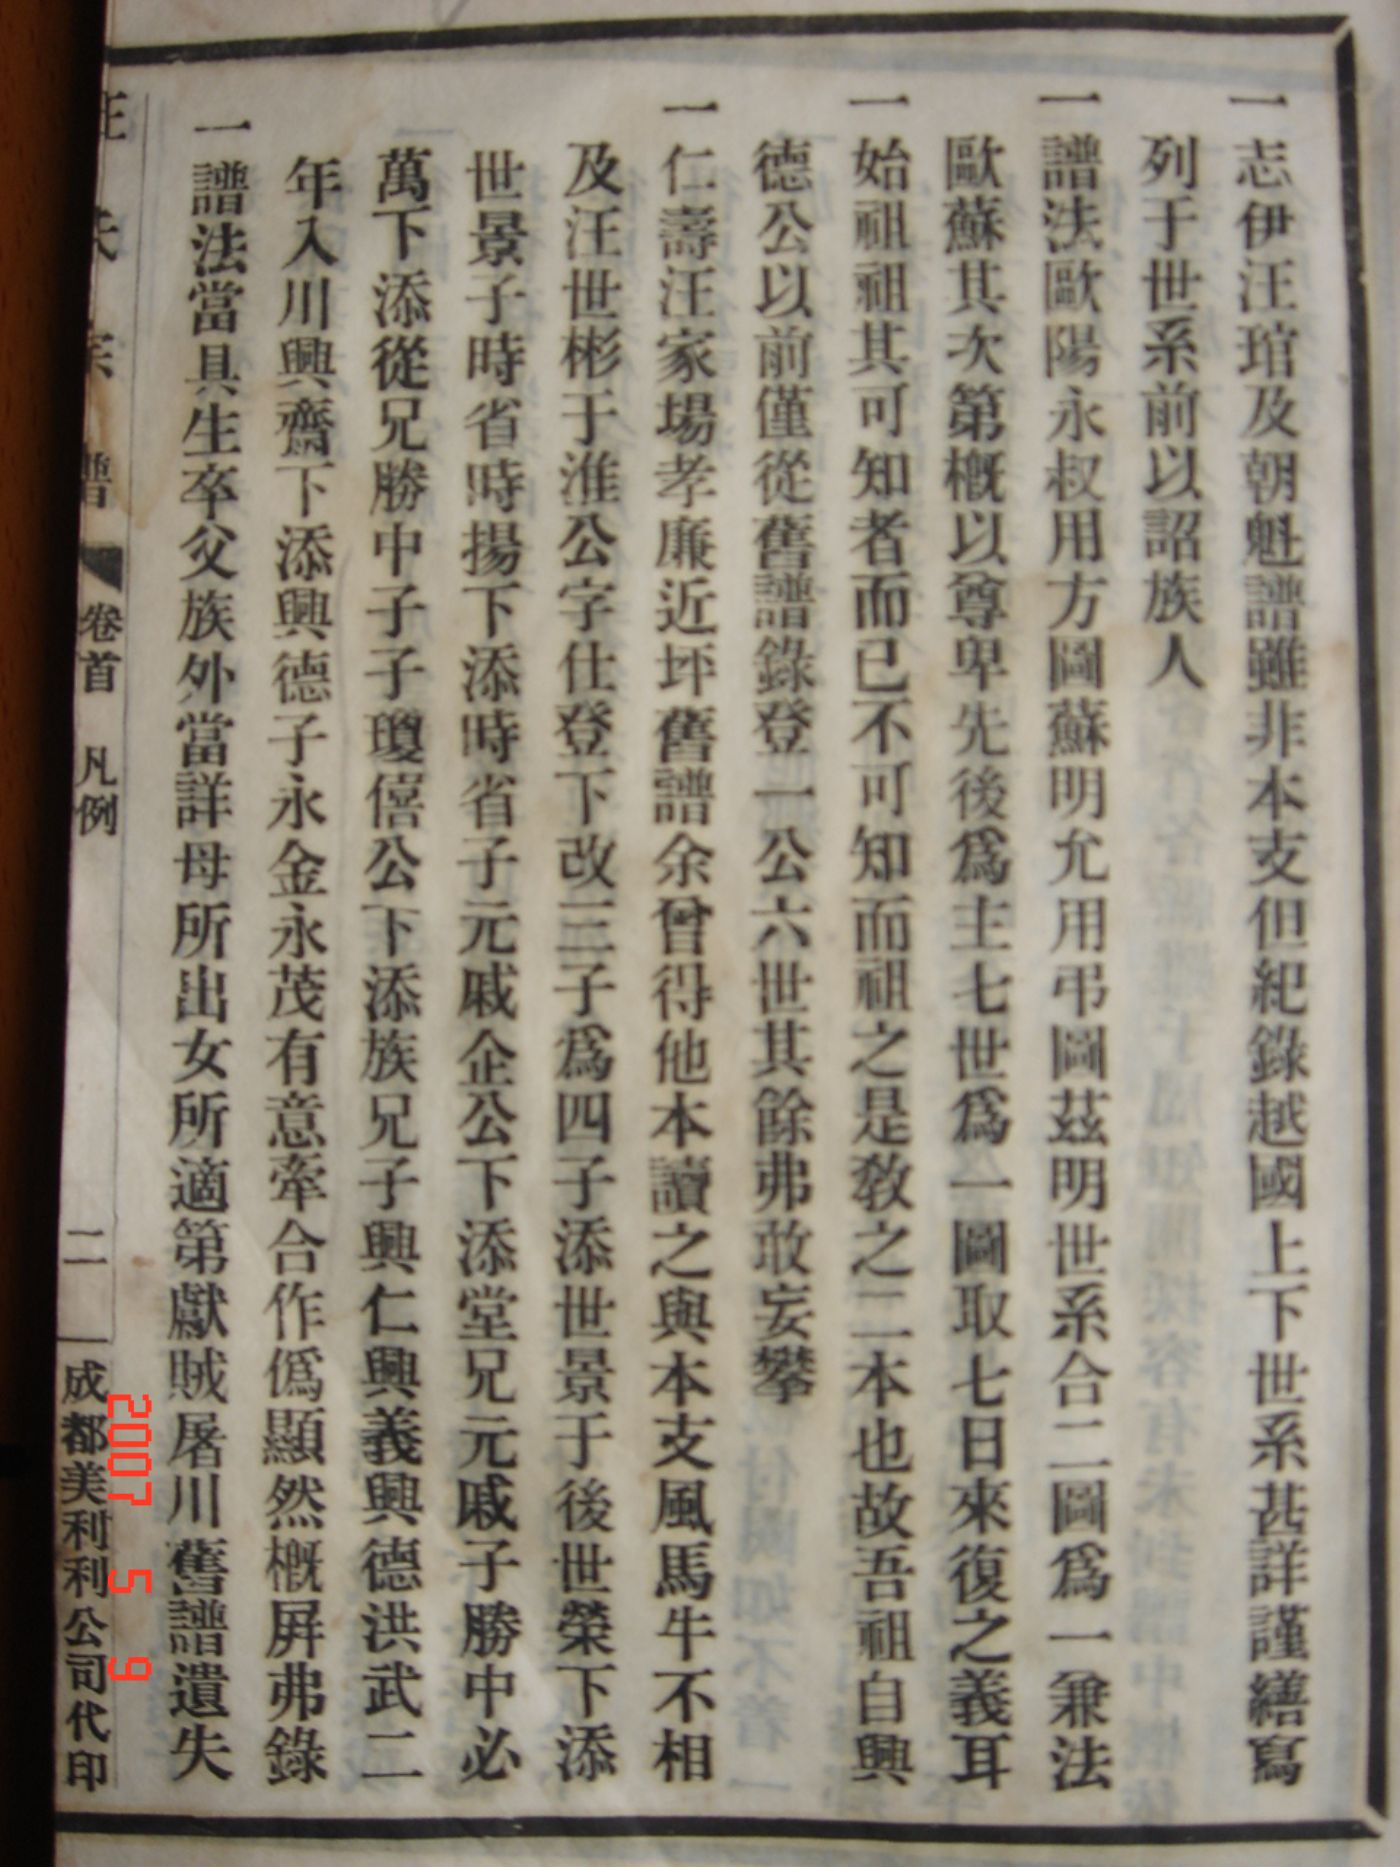 一志伊汪琯及朝魁譜雖非本支但紀錄越國上下世系甚詳謹繕寫
列于世系前以詔族人
一譜法歐陽永叔用方圖蘇明允用弔圖茲明世系合二圖爲一兼法
歐蘇其次第概以尊卑先後爲主七世爲一圖取七日來復之義耳
一始祖祖其可知者而已不可知而祖之是教之二本也故吾祖自興
德公以前僅從舊譜錄登一公六世其餘弗敢妄攀
一仁壽汪家場孝廉近坪舊譜余曾得他本讀之與本支風馬牛不相
及汪世彬于淮公字仕登下改三子爲四子添世景于後世榮下添
世景子時省時揚下添時省子元戚企公下添堂兄元戚子勝中必
萬下添從兄勝中子子瓊僖公下添族兄子興仁興義興德洪武二
年入川興齋下添興德子永金永茂有意牽合作僞顯然概屏弗錄
一譜法當具生卒父族外當詳母所出女所適第獻賊屠川舊譜遺失
汪氏宗譜
卷首 凡例
二
成都美利利公司代印
2007 5 9